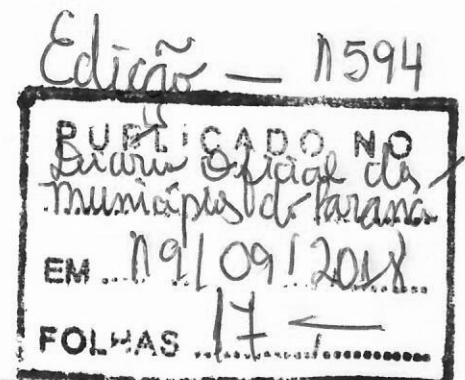 Edição — 1594
PUBLICADO NO
Diário Oficial dos
Municípios do Paraná
EM 19/09/2018
FOLHAS 17